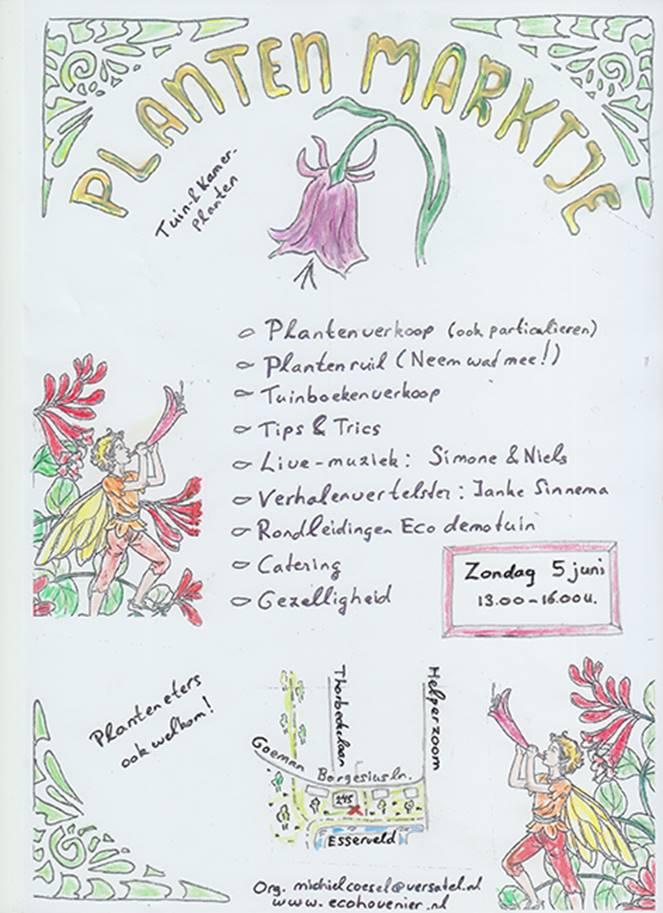 PLANTEN MARKTJE
Tuin- & Kamer-
planten
Plantenverkoop (ook particulieren)
Plantenruil (Neem wat mee!)
Tuinboekenverkoop
Tips & Trics
Live-muziek: Simone & Niels
Verhalenvertelster: Janke Sinnema
Rondleidingen Eco demotuin
Catering
Gezelligheid
Zondag 5 juni
13.00-16.00u.
Planteneters
ook welkom!
Thorbeckelaan
Helperzoom
Goeman Borgesiusln.
245
Esserveld
Org. michielcoesel@versatel.nl
www.ecohovenier.nl